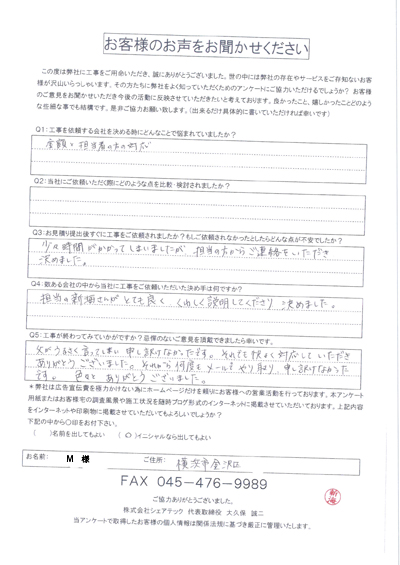 お客様のお声をお聞かせください
この度は弊社に工事をご用命いただき、誠にありがとうございました。世の中には弊社の存在やサービスをご存知ないお客
様が沢山いらっしゃいます。その方たちに弊社をよく知っていただくためのアンケートにご協力いただけるでしょうか？ お客様
のご意見をお聞かせいただき今後の活動に反映させていただきたいと考えております。良かったこと、嬉しかったことどのよう
な些細な事でも結構です。是非ご協力お願い致します。(出来るだけ具体的に書いていただければ幸いです)
Q1:工事を依頼する会社を決める時にどんなことで悩まれていましたか？
金額と担当者の方の対応
Q2:当社にご依頼いただく際にどのような点を比較・検討されましたか？
Q3:お見積り提出後すぐに工事をご依頼されましたか？もしご依頼されなかったとしたらどんな点が不安でしたか？
少し時間がかかってしまいましたが、担当の方からご連絡をいただき
決めました。
Q4:数ある会社の中から当社に工事をご依頼いただいた決め手は何ですか？
担当の新海さんがとても良く、くわしく説明してくださり 決めました。
Q5:工事が終わってみていかがですか？忌憚のないご意見を頂戴できましたら幸いです。
父がうるさく言ってしまい 申し訳けなかったです。それでも快よく対応していただき
ありがとうございました。それから何度もメールでやり取り、申し訳けなかった
です。色々とありがとうございました。
＊弊社は広告宣伝費を極力かけない為にホームページだけを頼りにお客様への営業活動を行っております。本アンケート
用紙またはお客様宅の調査風景や施工状況を随時ブログ形式のインターネットに掲載させていただいております。上記内容
をインターネットや印刷物に掲載させていただいてもよろしいでしょうか？
下記の中から〇印をお付下さい。
( )名前を出してもよい (〇)イニシャルなら出してもよい
お名前： M 様 ご住所： 横浜市金沢区
FAX 045-476-9989
ご協力ありがとうございました。
株式会社シェアテック 代表取締役 大久保 誠二
当アンケートで取得したお客様の個人情報は関係法規に基づき厳正に管理いたします。
新海